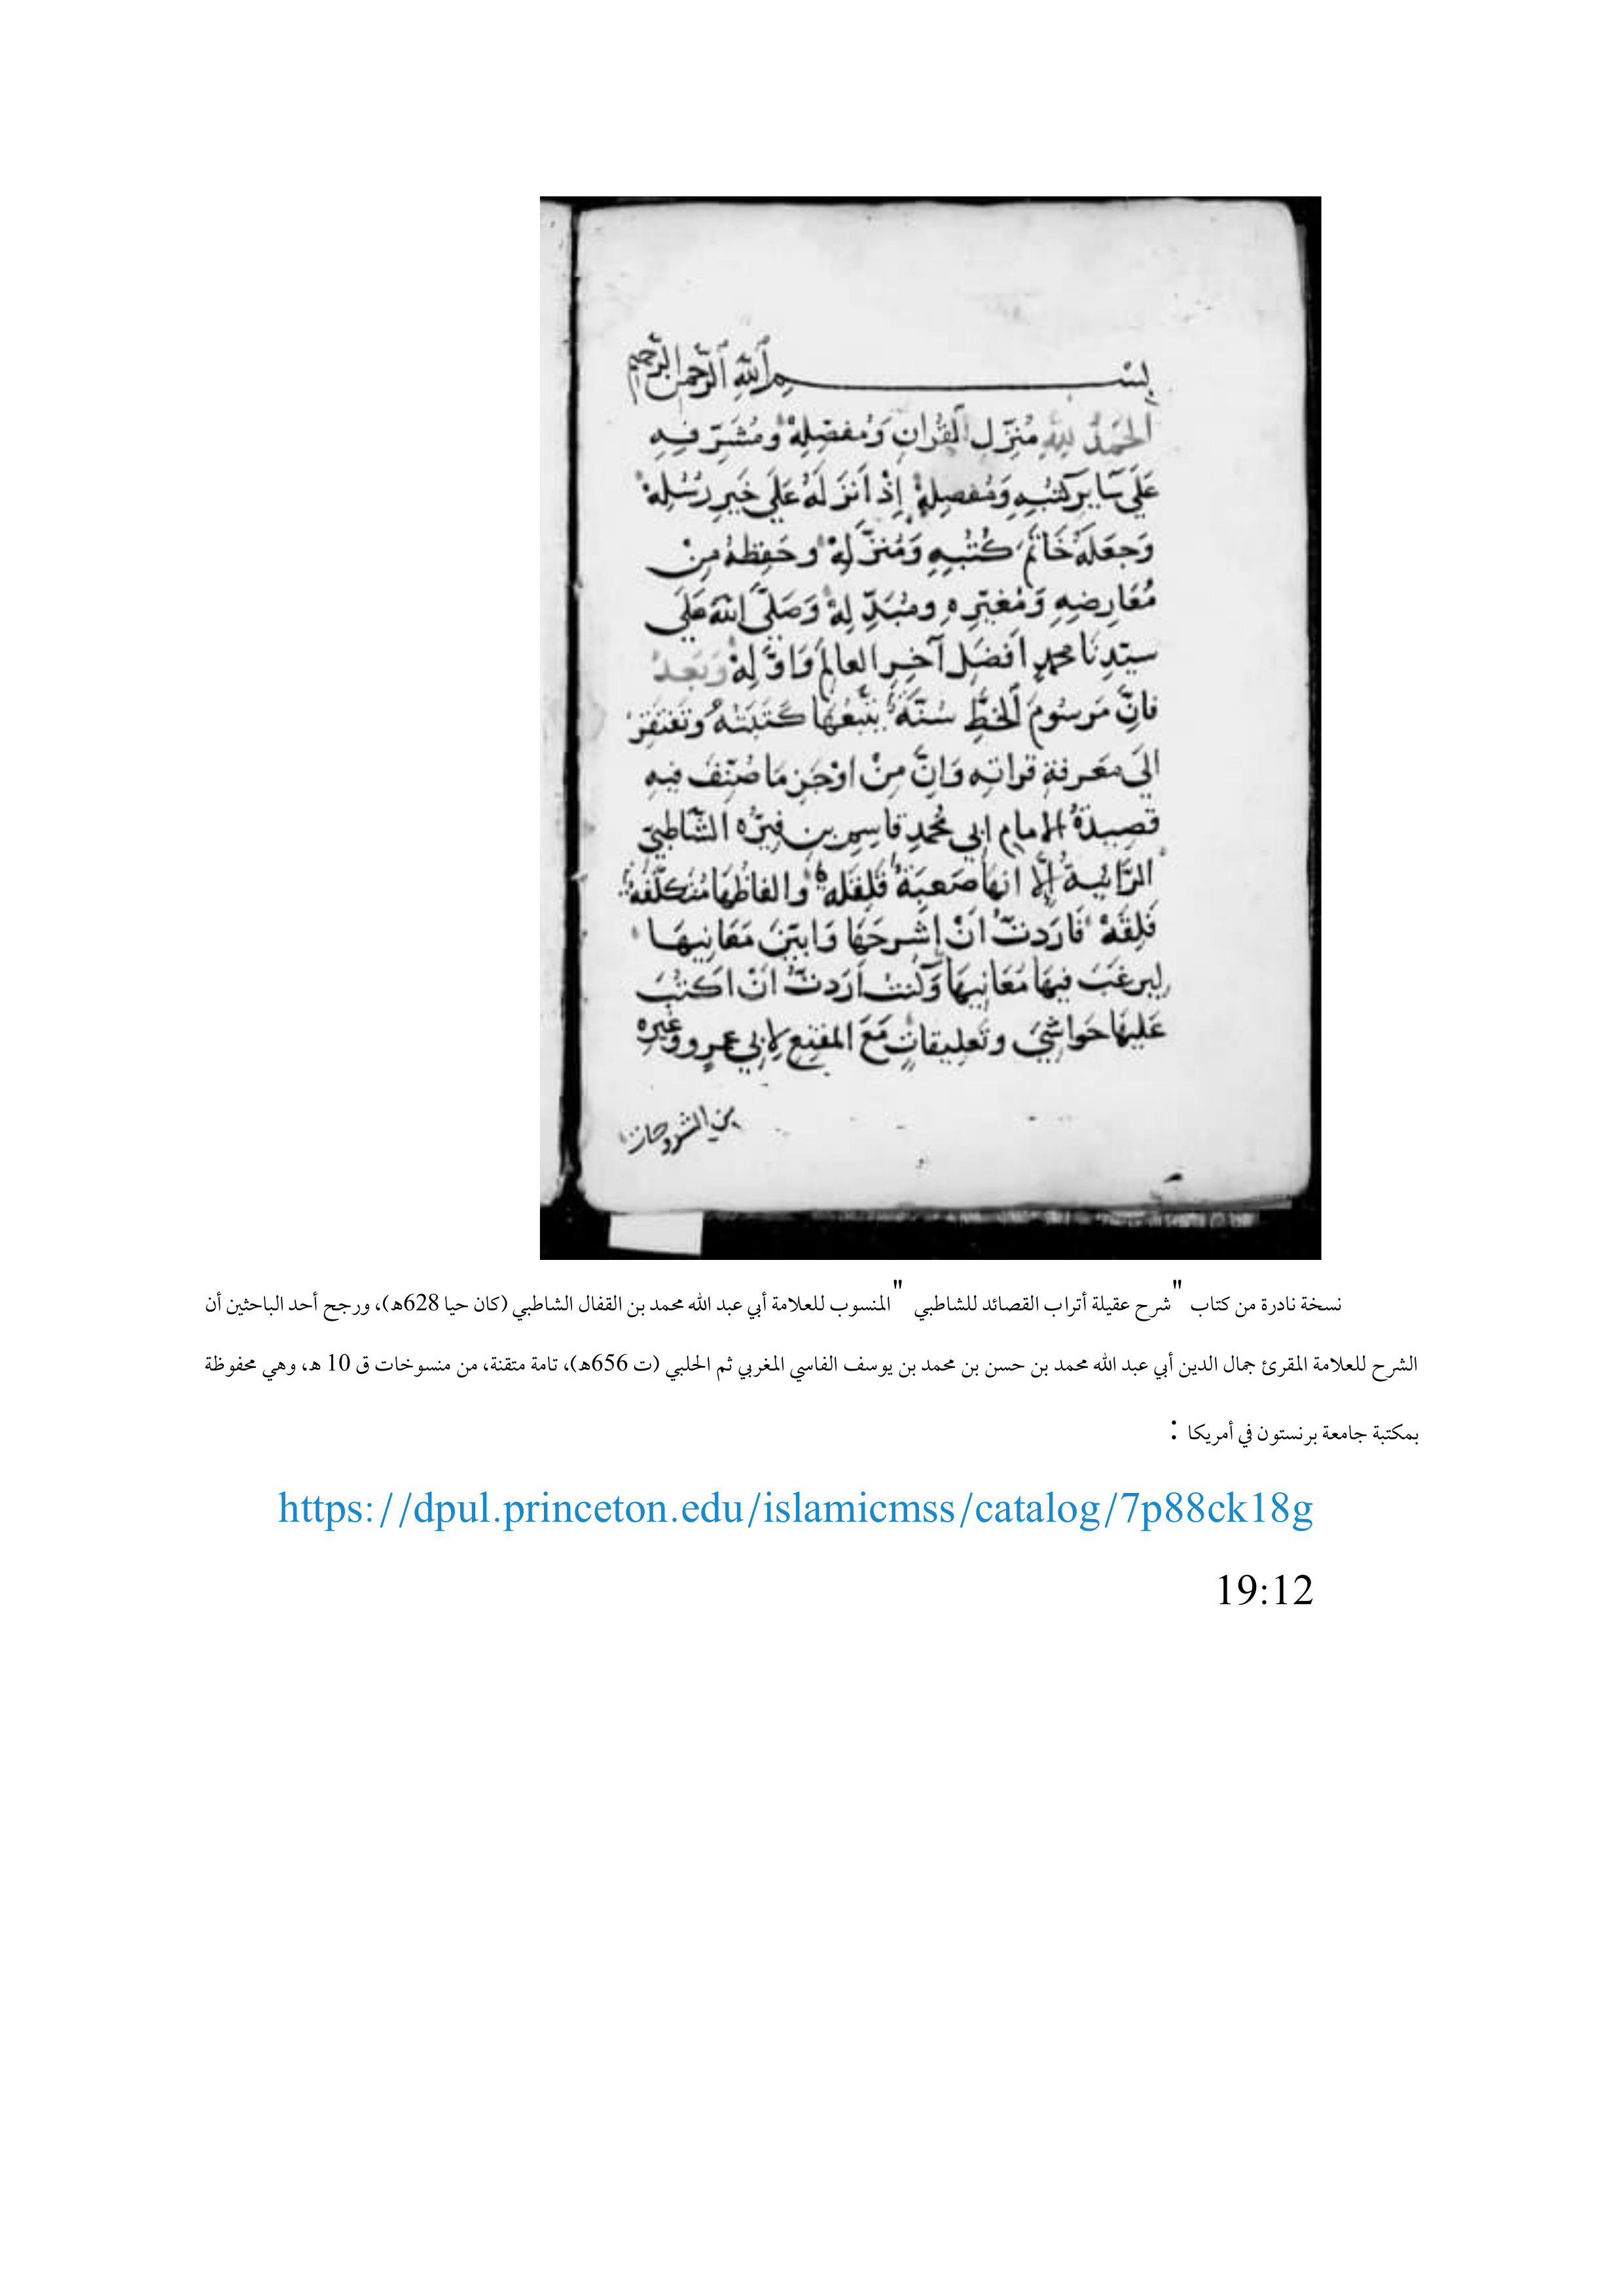 بِسْمِ ٱللَّهِ ٱلرَّحْمٰنِ ٱلرَّحِيمِ
ٱلحَمدُ لِلّهِ مُنَزِّلِ ٱلقُرانِ وَمُفَصِّلِهْ وَمُشَرِّفِهِ
عَلَى سَايِرِ كُتُبِهِ وَمُفَضِّلِهْ إِذْ أَنزَلَهُ عَلَى خَيرِ رُسُلِهْ
وَجَعَلَهُ خَاتَمَ كُتُبِهِ وَمُنَزَّلِهْ وحَفِظَهُ مِنْ
مُعَارِضِهِ وَمُغَيِّرِهِ ومُبَدِّلِهْ وَصَلَّى اللهُ عَلَى
سيّدِنَا محمدٍ أفضَلِ آخِرِ العالَمِ وَاوَّلِهْ وَبَعدُ
فانَّ مَرسُومَ ٱلخطِّ سُنَّةٌ يتَّبعُهَا كَتَبَتُهُ وتَفتَقِرُ
الَى مَعرفةِ قراتِهِ وَانَّ مِنْ اوْجَزِ مَا صُنِّفَ فيهِ
قَصِيدَةُ الامام ابي مُحمدٍ قاسِمِ بنِ فِيرُّه الشَّاطبيّ
الرَّائيةُ إلا انهَا صَعبَةٌ قَلِقَلَه والفاظُهَا مُتكلّفَةٌ
قَلِقَهْ فَارَدتُ أنْ أشرحَهَا وَابيّنَ مَعَانِيهَا
لِيرغَبَ فيهَا مُعَانِيهَا وَكُنتُ أرَدتُ أنْ اكتُبَ
عَليهَا حَواشِيَ وتَعلِيقاتٍ مَعَ المقنِع لابي عمرو وغيرِه
من الشروحات
نسخة نادرة من كتاب "شرح عقيلة أتراب القصائد للشاطبي "المنسوب للعلامة أبي عبد الله محمد بن القفال الشاطبي (كان حيا 628هـ)، ورجح أحد الباحثين أن
الشرح للعلامة المقرئ جمال الدين أبي عبد الله محمد بن حسن بن محمد بن يوسف الفاسي المغربي ثم الحلبي (ت 656هـ)، تامة متقنة، من منسوخات ق 10 هـ، وهي محفوظة
بمكتبة جامعة برنستون في أمريكا :
https://dpul.princeton.edu/islamicmss/catalog/7p88ck18g
19:12